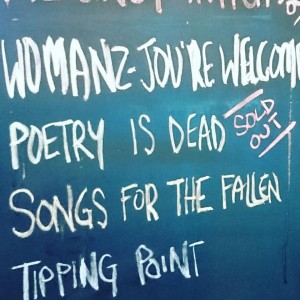 WOMANZ - YOU'RE WELCOM
POETRY IS DEAD SOLD OUT
SONGS FOR THE FALLEN
TIPPING POINT